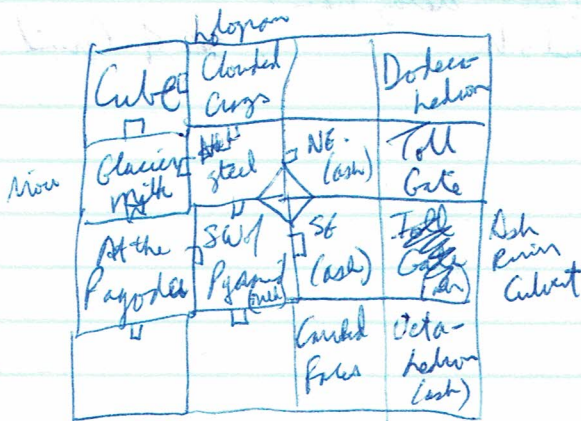 hologram
Cube
Clouded
Crags
Dodeca-
hedron
Glacier
Milk
steel
NE.
(ash)
Toll
Gate
At the
Pagoda
SW of
Pyramid
SE
(ash)
Ash
River
Culvert
Carved
Faces
Octa-
hedron
(ash)